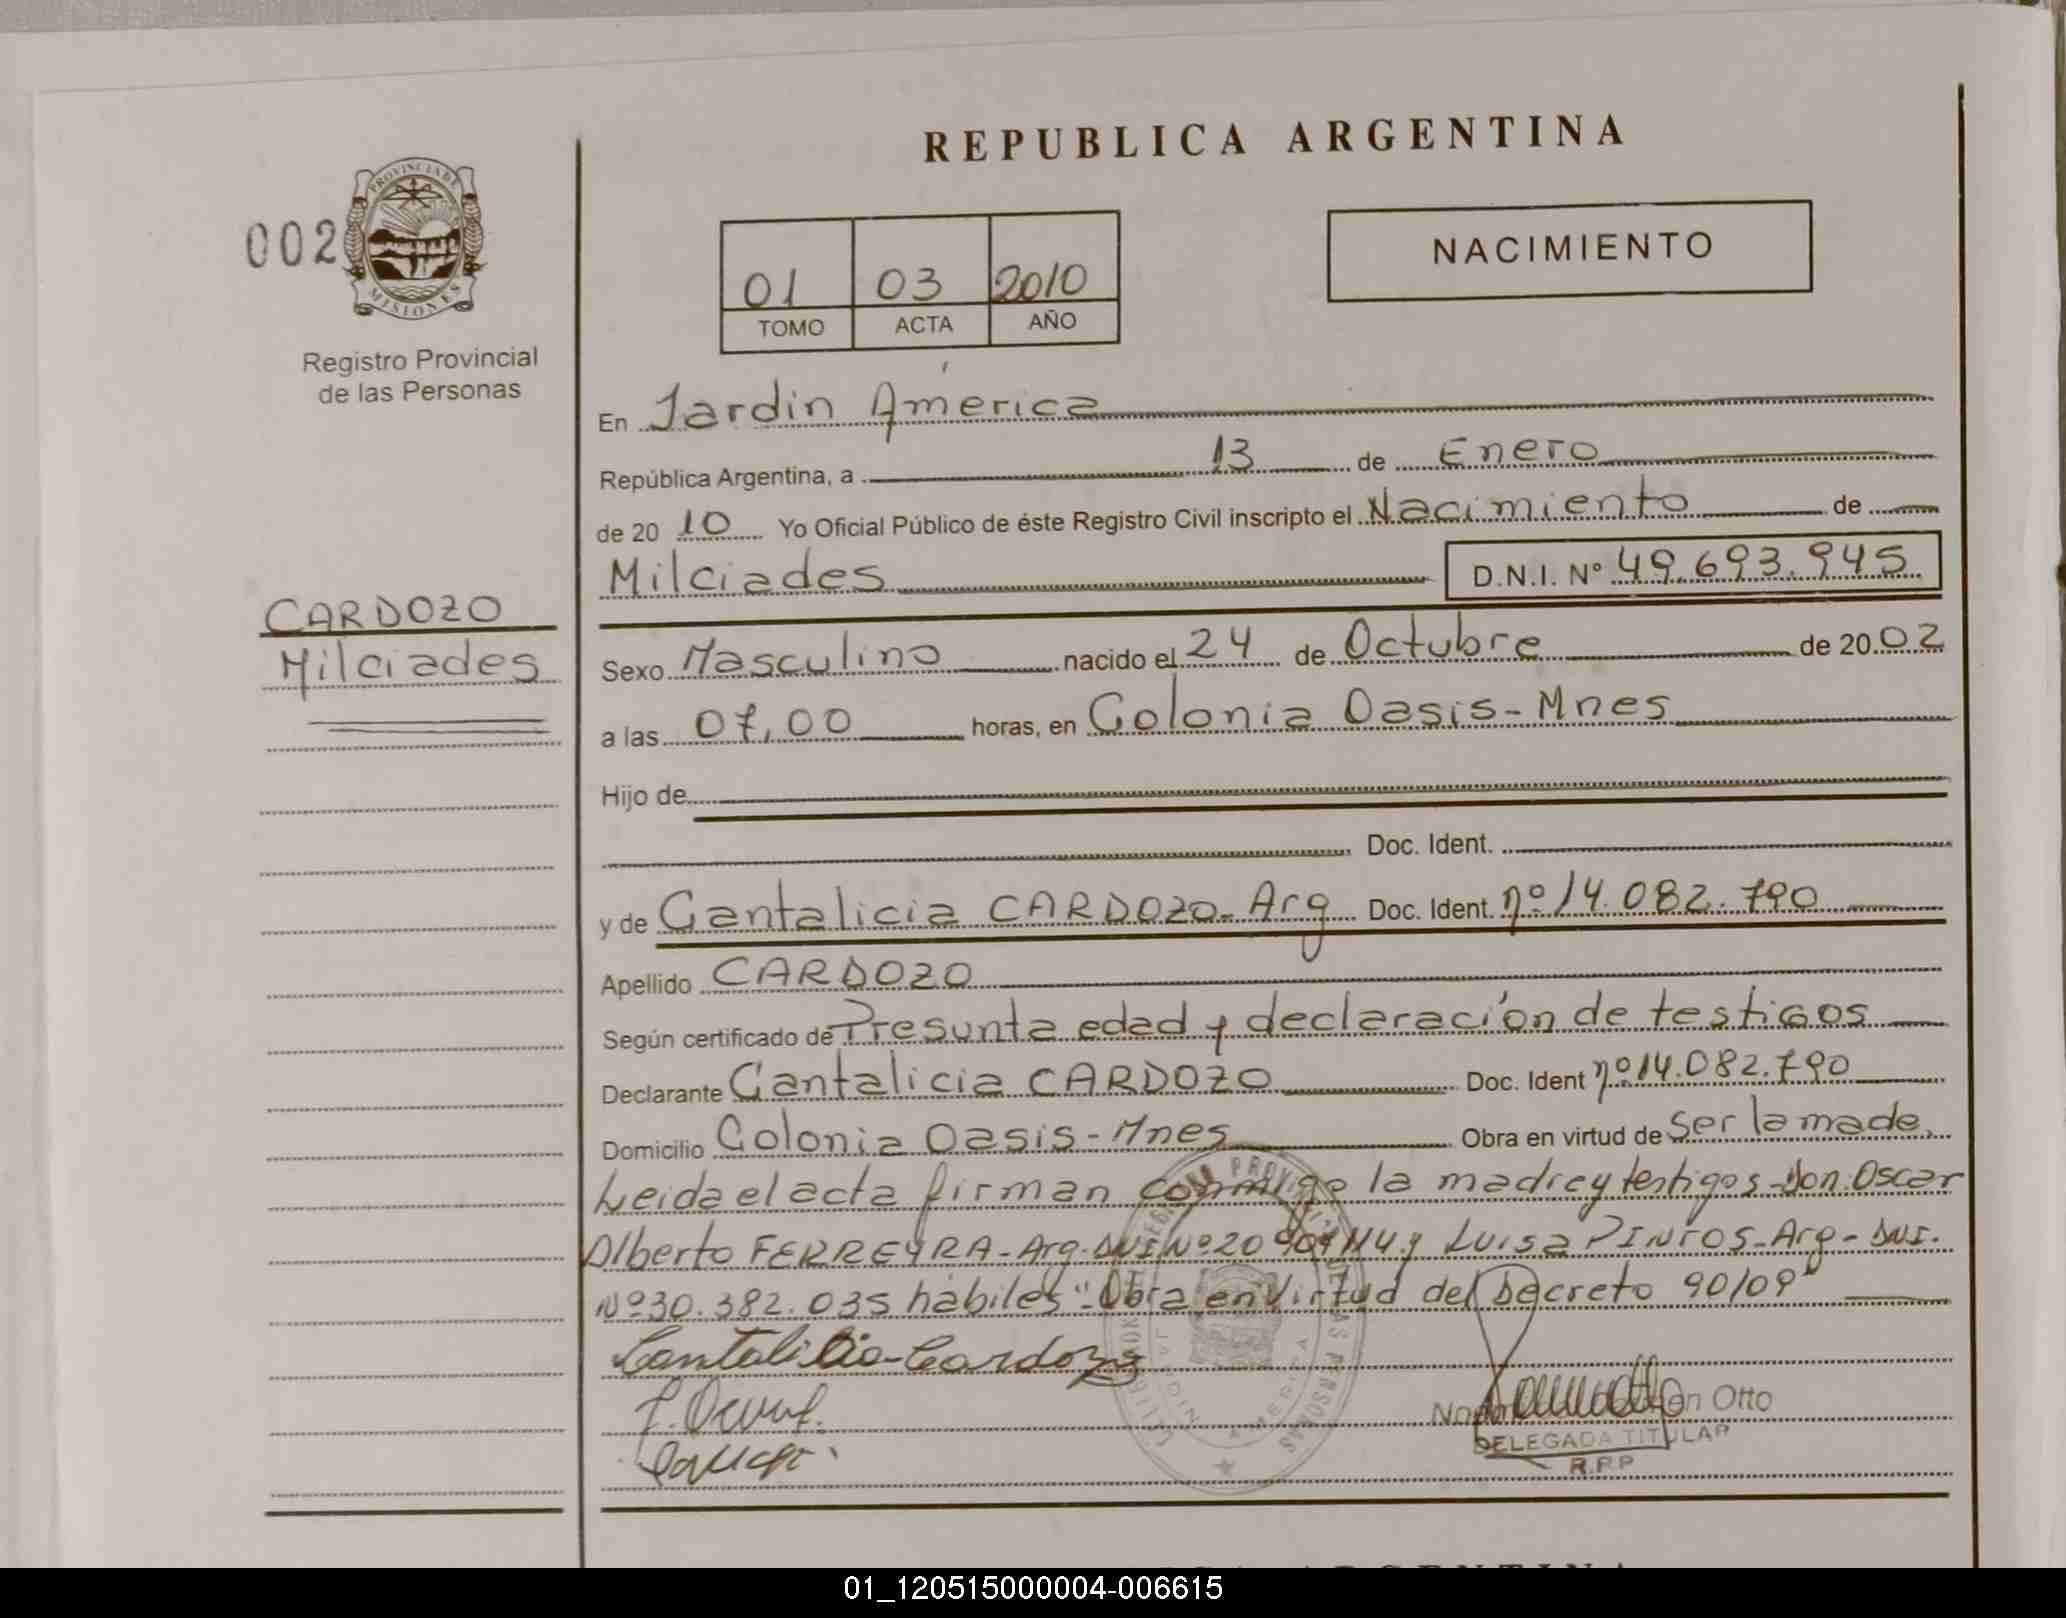 REPUBLICA ARGENTINA
002
PROVINCIA DE
MISIONES
Registro Provincial
de las Personas
01 03 2010
TOMO ACTA AÑO
NACIMIENTO
CARDOZO
Milciades
En Jardín América
República Argentina, a 13 de Enero
de 20 10 Yo Oficial Público de éste Registro Civil inscripto el Nacimiento de
Milciades D.N.I. N° 49.693.945
Sexo Masculino nacido el 24 de Octubre de 20 02
a las 07,00 horas, en Colonia Oasis-Mnes
Hijo de
Doc. Ident.
y de Cantalicia CARDOZO-Arg Doc. Ident. nº 14.082.790
Apellido CARDOZO
Según certificado de Presunta edad y declaración de testigos
Declarante Cantalicia CARDOZO Doc. Ident nº 14.082.790
Domicilio Colonia Oasis-Mnes Obra en virtud de ser la made.
Leida el acta firman conmigo la madre y testigos-Don Oscar
Alberto FERREYRA-Arg-DNI Nº 20 y Luisa PINTOS-Arg-DNI.
Nº 30.382.035 hábiles "Obra en Virtud del Decreto 90/09"
Cantalicia Cardozo
Otto
DELEGADA TITULAR
R.P.P
REPUBLICA ARGENTINA
01_120515000004-006615